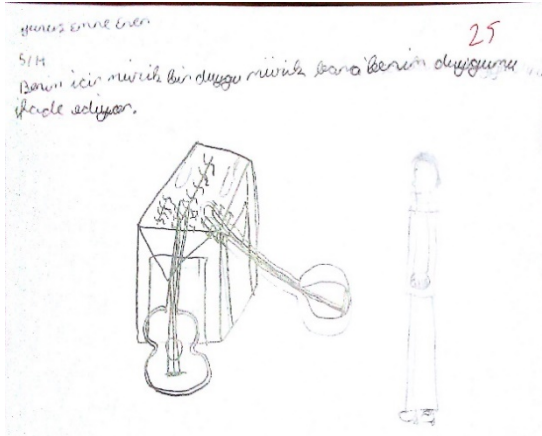 Yunus Emre Eren
25
5/H
Benim için müzik bir duygu müzik bana benim duygumu
ifade ediyor.